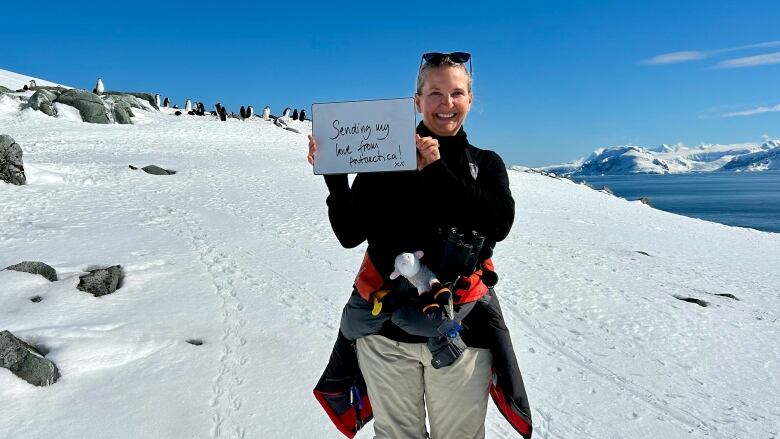 Sending my
love from
Antarctica!
xx